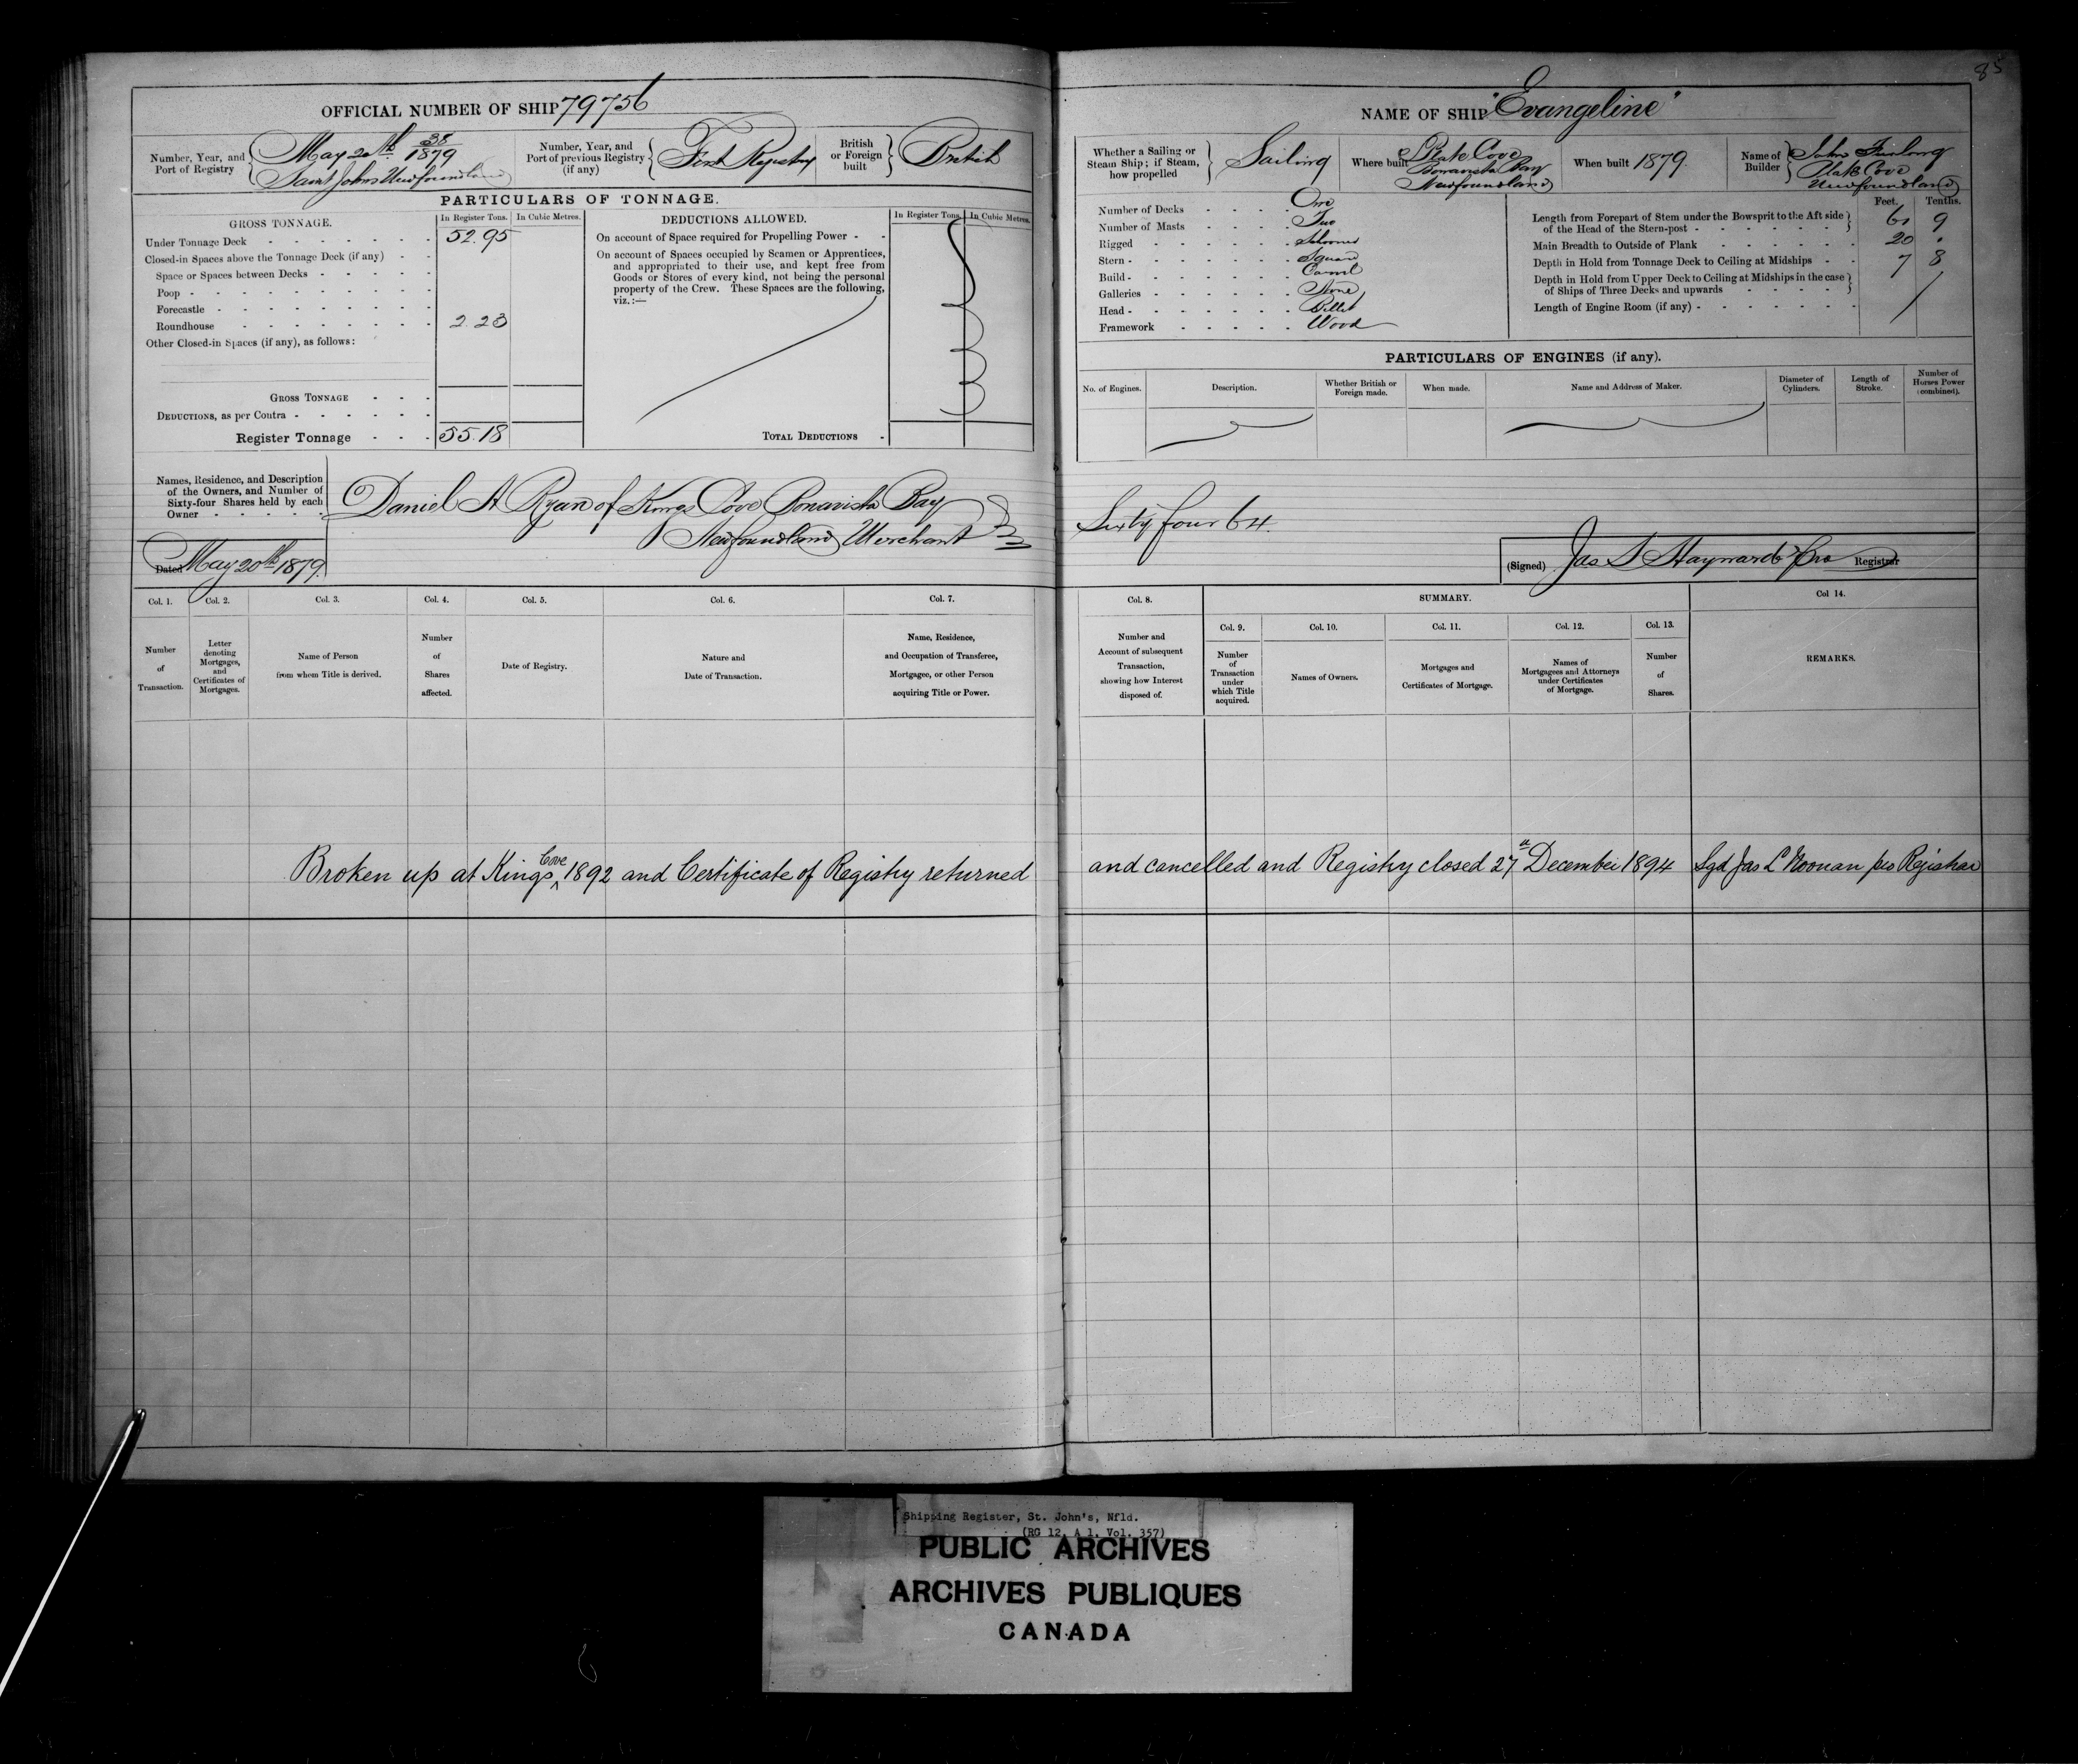 85
OFFICIAL NUMBER OF SHIP 79756
Number, Year, and Port of Registry
May 20th 38/1879
Saint Johns Newfoundland
Number, Year, and Port of previous Registry (if any)
First Registry
British or Foreign built
British
PARTICULARS OF TONNAGE.
GROSS TONNAGE.
In Register Tons.
In Cubic Metres.
Under Tonnage Deck 52.95
Closed-in Spaces above the Tonnage Deck (if any)
Space or Spaces between Decks
Poop
Forecastle
Roundhouse 2.23
Other Closed-in Spaces (if any), as follows:
GROSS TONNAGE
DEDUCTIONS, as per Contra
Register Tonnage 55.18
DEDUCTIONS ALLOWED.
In Register Tons.
In Cubic Metres.
On account of Space required for Propelling Power
On account of Spaces occupied by Seamen or Apprentices,
and appropriated to their use, and kept free from
Goods or Stores of every kind, not being the personal
property of the Crew. These Spaces are the following,
viz.:—
TOTAL DEDUCTIONS
Names, Residence, and Description
of the Owners, and Number of
Sixty-four Shares held by each
Owner
Daniel A Ryan of Kings Cove Bonavista Bay
Newfoundland Merchant
Dated May 20th 1879.
Col. 1.
Number of Transaction.
Col. 2.
Letter denoting Mortgages, and Certificates of Mortgages.
Col. 3.
Name of Person from whom Title is derived.
Col. 4.
Number of Shares affected.
Col. 5.
Date of Registry.
Col. 6.
Nature and Date of Transaction.
Col. 7.
Name, Residence, and Occupation of Transferee, Mortgagee, or other Person acquiring Title or Power.
Broken up at Kings Cove 1892 and Certificate of Registry returned
NAME OF SHIP "Evangeline"
Whether a Sailing or Steam Ship; if Steam, how propelled
Sailing
Where built
Plate Cove
Bonavista Bay
Newfoundland
When built 1879.
Name of Builder
John Furlong
Plate Cove
Newfoundland
Number of Decks One
Number of Masts Two
Rigged Schooner
Stern Square
Build Carvel
Galleries None
Head Billet
Framework Wood
Feet. Tenths.
Length from Forepart of Stem under the Bowsprit to the Aft side
of the Head of the Stern-post 61 9
Main Breadth to Outside of Plank 20 .
Depth in Hold from Tonnage Deck to Ceiling at Midships 7 8
Depth in Hold from Upper Deck to Ceiling at Midships in the case
of Ships of Three Decks and upwards
Length of Engine Room (if any)
PARTICULARS OF ENGINES (if any).
No. of Engines.
Description.
Whether British or Foreign made.
When made.
Name and Address of Maker.
Diameter of Cylinders.
Length of Stroke.
Number of Horses Power (combined).
Sixty four 64
(Signed) Jas S Hayward Pro Registrar
Col. 8.
Number and Account of subsequent Transaction, showing how Interest disposed of.
SUMMARY.
Col. 9.
Number of Transaction under which Title acquired.
Col. 10.
Names of Owners.
Col. 11.
Mortgages and Certificates of Mortgage.
Col. 12.
Names of Mortgagees and Attorneys under Certificates of Mortgage.
Col. 13.
Number of Shares.
Col 14.
REMARKS.
and cancelled and Registry closed 27th December 1894 Sgd Jas L Noonan pro Registrar
Shipping Register, St. John's, Nfld.
(RG 12, A 1, Vol. 357)
PUBLIC ARCHIVES
ARCHIVES PUBLIQUES
CANADA